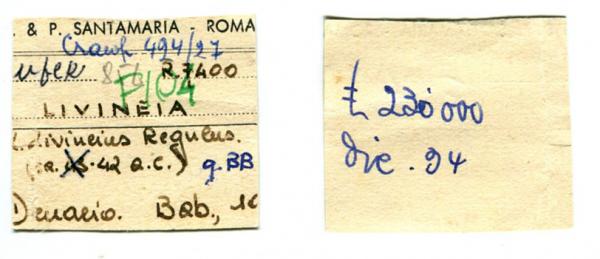 . & P. SANTAMARIA, ROMA
Crawf 494/27
R. 7400
LIVINEIA
L. Livineius Regulus.
42 a.C.) q.BB
Denario. Bab.,
£ 230000
dic. 94